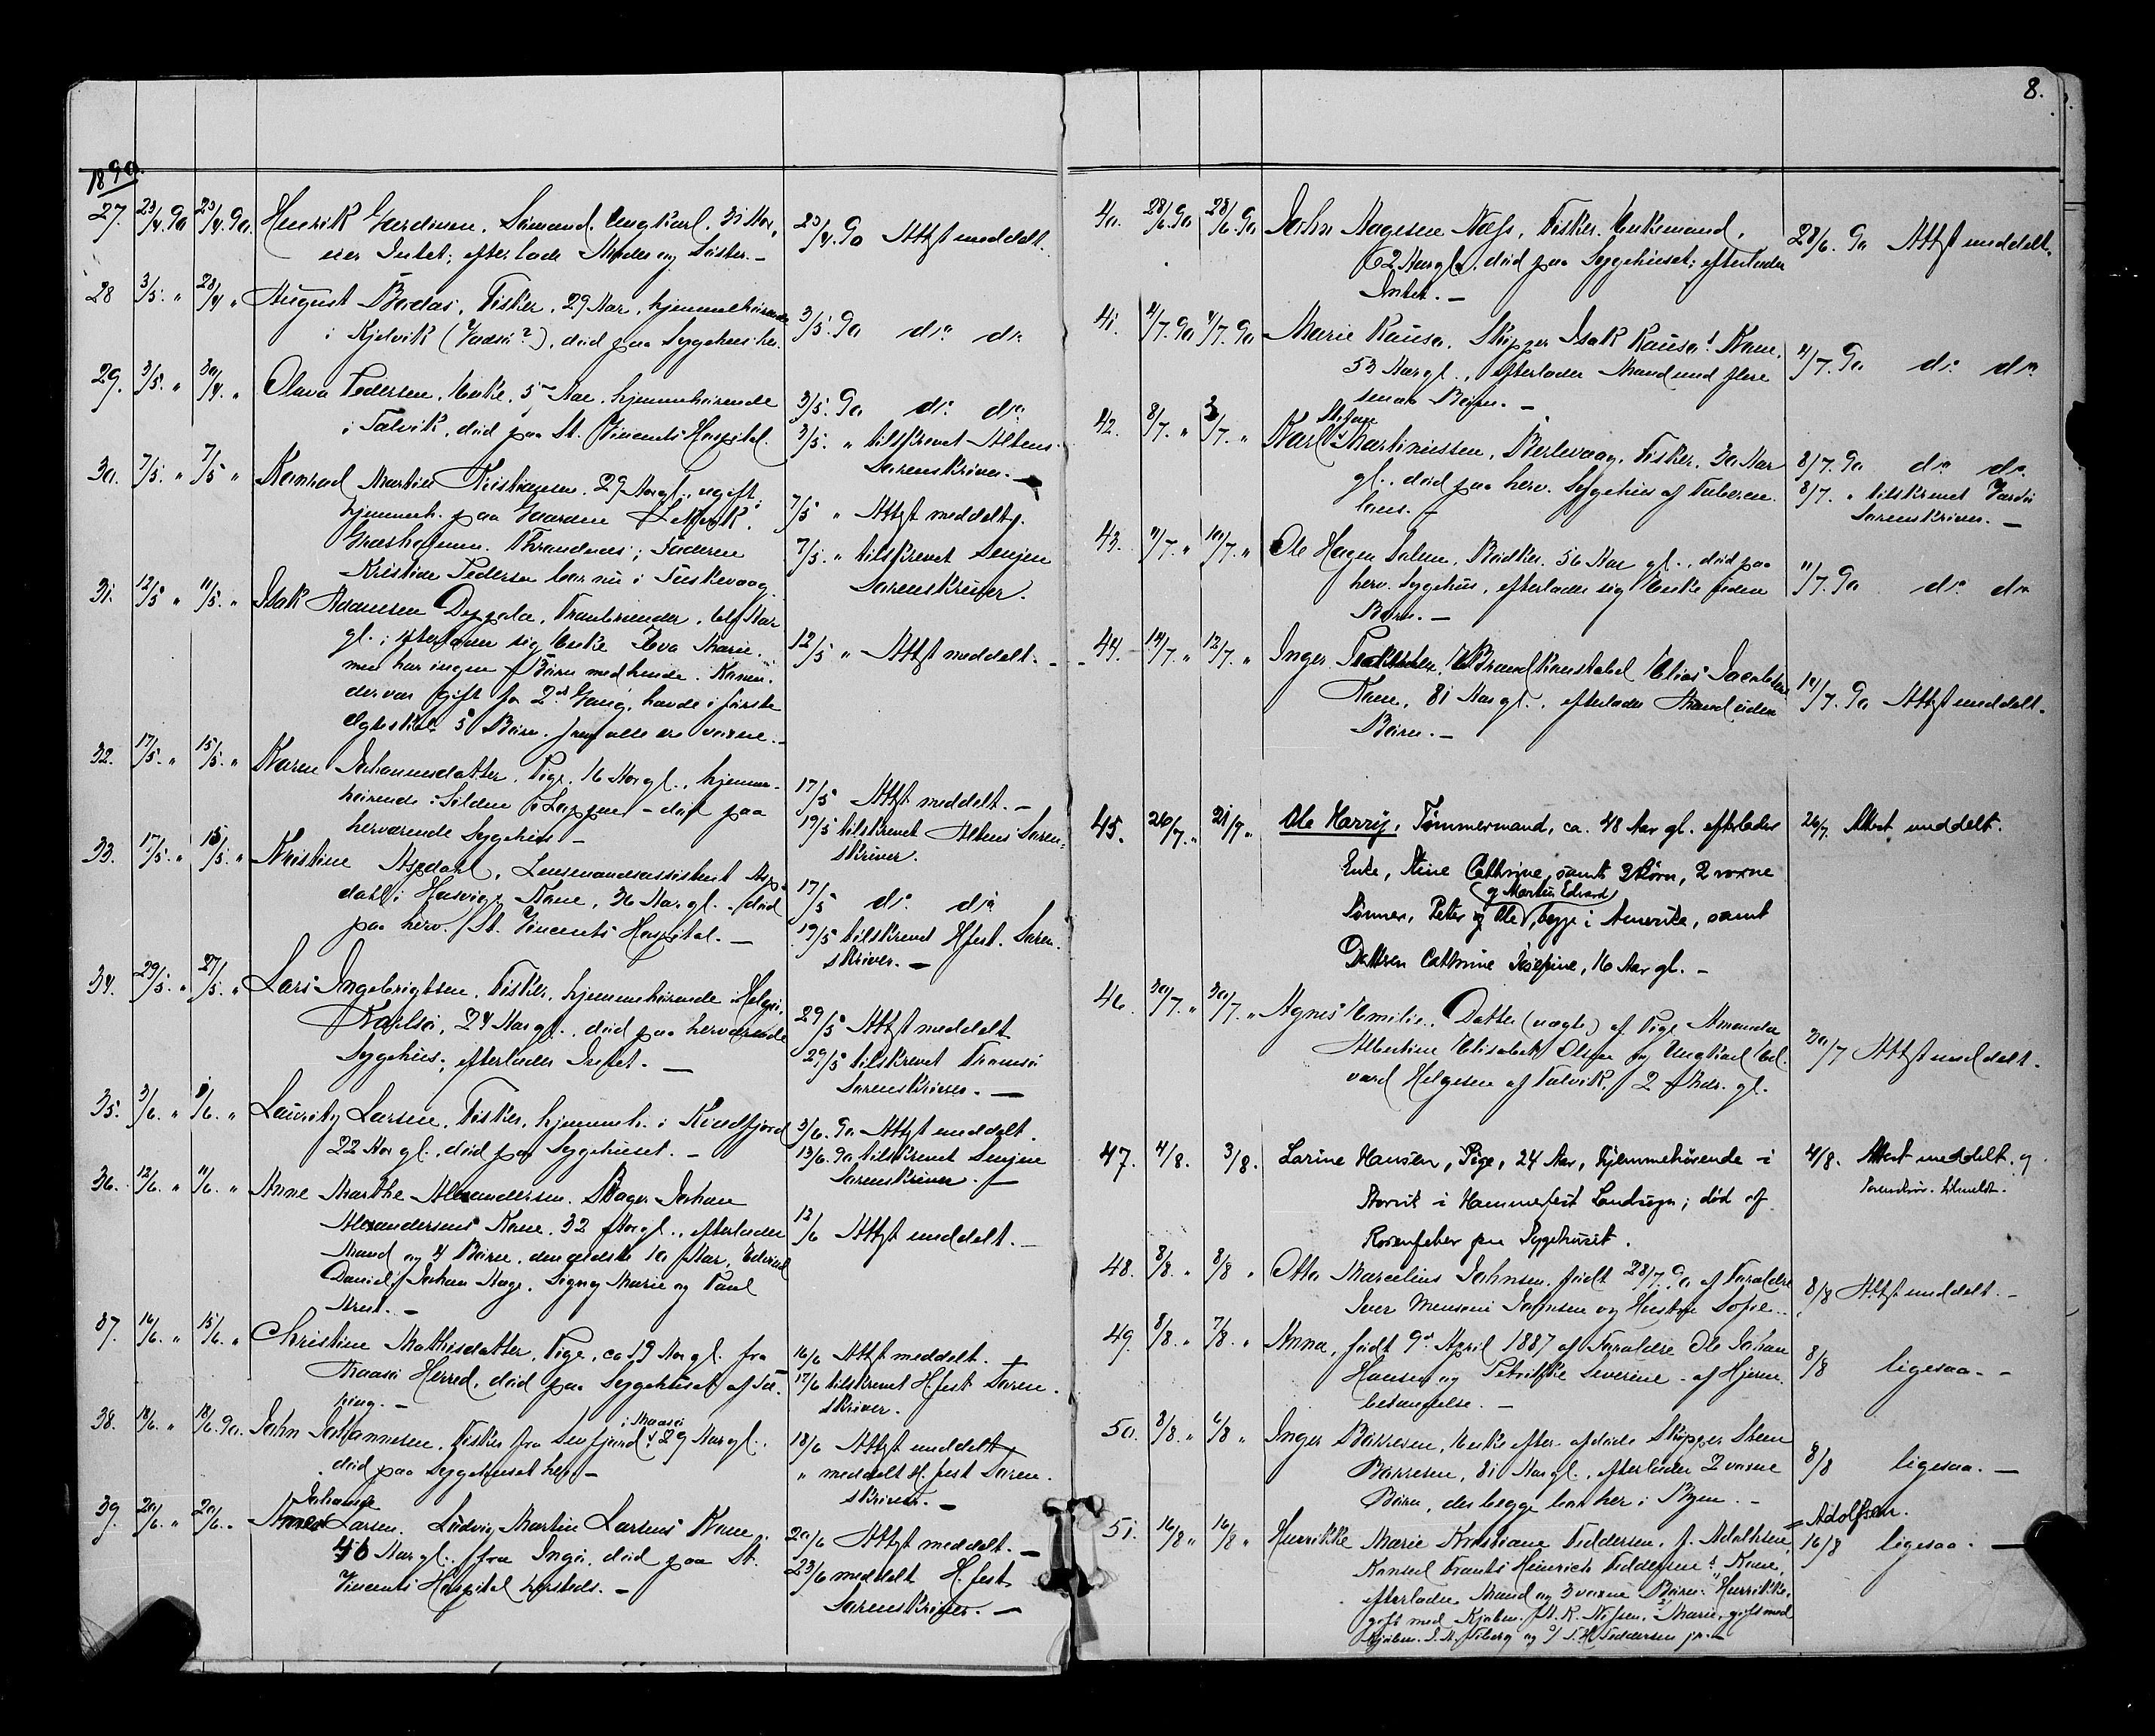 8.
1890.
27. 23/4 90 23/4 90. Henrik Gardinen, Sømand, Ungkarl, 31 Aar,
eier Intet; efterlader Moder og Søster. –
23/4. 90 Attest meddelt.
28 3/5. " 28/4 " August Bordas, Fisker, 29 Aar, hjemmehørende
i Kjelvik (Vadsø?), død paa Sygehus her.
3/5. 90 do. do.
29. 3/5. " 30/4. " Olava Pedersen, Enke, 57 Aar, hjemmehørende
i Talvik, død paa St. Vincents Hospital.
3/5. 90 do. do.
3/5. " tilskrevet Altens
Sorenskriver. –
30. 7/5. " 7/5 " Konrad Martin Kristiansen, 29 Aar gl., ugift,
hjemmeh. paa Gaarden
Græsholmen, Throndenes; Faderen
Kristian Pedersen bor nu i Tuskevaag.
7/5 " Attest meddelt.
7/5. " tilskrevet Senjen
Sorenskriver.
31. 12/5 " 11/5. " Isak Adamsen Deppala, Tranbrænder, Aar
gl.; efterlader sig Enke Eva Marie,
men har ingen Børn med hende. Konen,
der var gift for 2d Gang, havde i første
Ægteskab 5 Børn, som alle ere voxne. –
12/5 " Attest meddelt. –
32. 17/5. " 15/5. " Karen Johannesdatter, Pige, 16 Aar gl., hjemme-
hørende i Silden i Loppen – død paa
herværende Sygehus –
17/5 Attest meddelt. –
19/5 tilskrevet Altens Soren-
skriver.
33. 17/5. " 15/5. " Kristine Aspdahl, Lensmandsassistent Asp-
dahl i Hasvigs Kone, 36 Aar gl. – død
paa herv. St. Vincents Hospital. –
17/5 do. do.
19/5 tilskrevet Hfest. Soren-
skriver. –
34. 29/5. " 27/5. " Lars Ingebrigtsen, Fisker, hjemmehørende i Helgø,
Karlsø, 24 Aar gl., død paa herværende
Sygehus; efterlader Intet. –
29/5 Attest meddelt
29/5 tilskrevet Tromsø
Sorenskriver. –
35. 3/6. " /6. " Lauritz Larsen, Fisker, hjemmeh. i
22 Aar gl., død paa Sygehuset. –
3/6. 90 Attest meddelt.
13/6. 90 tilskrevet Senjen
Sorenskriver. –
36. 12/6. " 11/6. " Anne Marthe Alexandersen, Bager Johan
Alexandersens Kone, 32 Aar gl., efterlader
Mand og 4 Børn, den ældste 10 Aar, Edvind
Daniel, Johan Aage, Signy Marie og Paul
Arnt. –
12/6 Attest meddelt. –
37. 16/6. " 15/6. " Christine Mathisdatter, Pige, ca 19 Aar gl. fra
Maasø Herred, død paa Sygehuset af Tæ-
ring. –
16/6 Attest meddelt. –
17/6 tilskrevet H.fest Soren-
skriver.
38. 18/6. " 18/6. 90. John Johannesen, Fisker fra Snefjord i Maasø, 29 Aar gl.,
død paa Sygehuset her. –
18/6 Attest meddelt
" meddelt H.fest Soren-
skriver. –
39. 20/6. " 20/6. " Johanne Larsen, Ludvig Martin Larsens Kone,
Aar gl., fra Ingø, død paa St.
Vincents Hospital hersteds. –
20/6 Attest meddelt. –
23/6 meddelt H.fest
Sorenskriver. –
40. 28/6. 90 28/6. 90 John Aagesen Næss, Fisker, Enkemand,
62 Aar gl., død paa Sygehuset; efterlader
Intet. –
28/6. 90 Attest meddelt.
41. 4/7. 90 4/7. 90 Marie Knusen, Skipper Isak Knusens Kone,
53 Aar gl., efterlader Mand med flere
smaa Børn. –
4/7. 90 do. do.
42. 8/7. " 3/7. " Karl Martinussen, Berlevaag, Fisker, 30 Aar
gl., død paa herv. Sygehus af Tuberku-
lous. –
8/7. 90 do. do.
8/7. " tilskrevet Vardø
Sorenskriver. –
43. 11/7. " 10/7. " Ole Hagen Salen, Bødker, 56 Aar gl., død paa
herv. Sygehus, efterlader sig Enke uden
Børn. –
11/7. 90 do. do.
44. 14/7. " 12/7. " Inger Brandkonstabel Elias
Kone, 81 Aar gl., efterlader Mand uden
Børn. –
14/7. 90 Attest meddelt.
45. 26/7. " 21/7 " Ole Harry, Tømmermand, ca. 48 Aar gl. efterlader
Enke, Stine Cathrine, samt 3 Børn, 2 voxne
Sønner, Peter og Ole og Martin Edvard, begge i Amerika, samt
Datteren Cathrine Josefine, 16 Aar gl. –
26/7. Attest meddelt.
46. 30/7. " 30/7. " Agnes Emilie, Datter (uægte) af Pige Amanda
Albertine Elisabeth Olsen og Ungkarl Ed-
vard Helgesen af Talvik, 2 Mdr. gl.
30/7 Attest meddelt.
47. 4/8. 3/8. Larine Hansen, Pige, 24 Aar, hjemmehørende i
Storvik i Hammerfest Landsogn; død af
Rosenfeber paa Sygehuset.
4/8. Attest meddelt og
Sorenskriv. tilmeldt.
48. 8/8. " 8/8 " Otto Marcelius Johnsen, født 28/7. 90 af Forældre
Iver Mensoni Johnsen og Hustru Sofie. –
8/8 Attest meddelt. –
49. 8/8. " 7/8. " Anna, født 9d April 1887 af Forældre Ole Johan
Hansen og Petrikke Severine – af Hjerne-
betændelse. –
8/8 ligesaa. –
50. 8/8. " 6/8 " Inger Børresen, Enke efter afdøde Skipper Steen
Børresen, 81 Aar gl., efterlader 2 voxne
Børn, der begge bor her i Byen. –
8/8 ligesaa. –
51. 16/8 " 16/8 " Henrikke Marie Kristiane Feddersen, f. Adolfsen,
Konsul Frants Heinrich Feddersens Kone,
efterlader Mand og 3 voxne Børn: Henrikke,
gift med Kjøbm. Nissen, 2/ Marie, gift med
Kjøbm. og 3/ F. H. Feddersen jr. –
= Adolfsen.
16/8 ligesaa. –